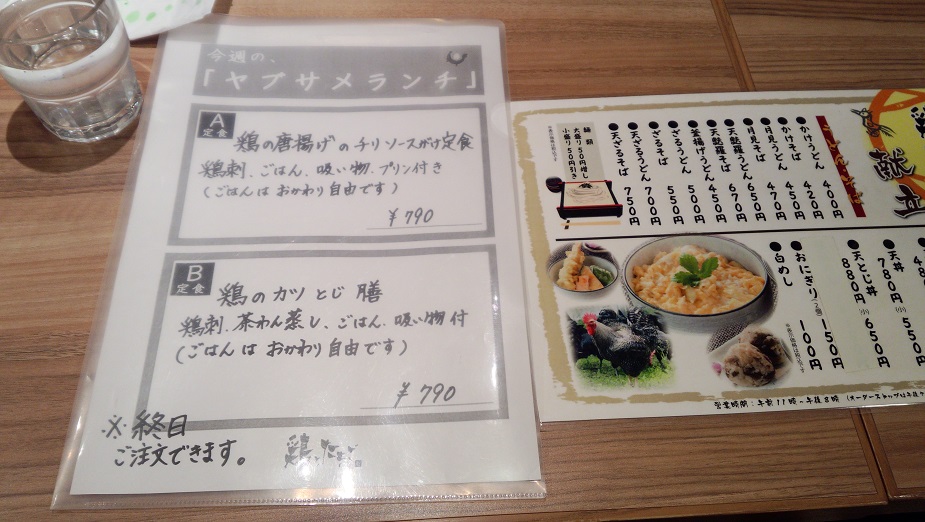 今週の、
「ヤブサメランチ」
A
定食
鶏の唐揚げのチリソースがけ定食
鶏刺、ごはん、吸い物、プリン付き
(ごはんは おかわり自由です)
¥790
B
定食
鶏のカツとじ膳
鶏刺、茶わん蒸し、ごはん、吸い物付
(ごはんは おかわり自由です)
¥790
※終日
ご注文できます。
献立
●かけうどん 400円
●かけそば 420円
●月見うどん 450円
●月見そば 470円
●天麩羅うどん 650円
●天麩羅そば 670円
●釜揚げうどん 450円
●ざるうどん 500円
●ざるそば 550円
●天ざるうどん 700円
●天ざるそば 750円
麺類
大盛り50円増し
小盛り50円引き
●天丼 780円
(小) 550円
●天とじ丼 880円
(小) 650円
●おにぎり(2個) 150円
●白めし 100円
営業時間:午前11時~午後8時